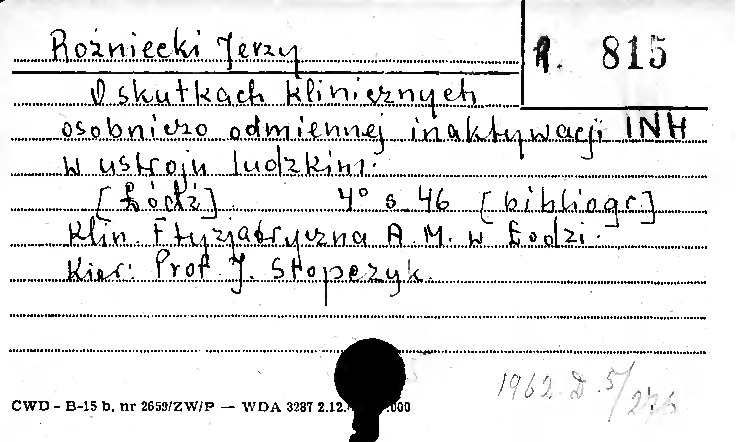 Rożniecki Jerzy
R. 815
O skutkach klinicznych
osobniczo odmiennej inaktywacji INH
w ustroju ludzkim.
[Łódź] 4° s. 46 [bibliogr.]
Klin. Ftyzjatryczna A. M. w Łodzi.
Kier: Prof. J. Stopczyk.
1962. D. 5/276
CWD - B-15 b. nr 2659/ZW/P — WDA 3287 2.12. 000